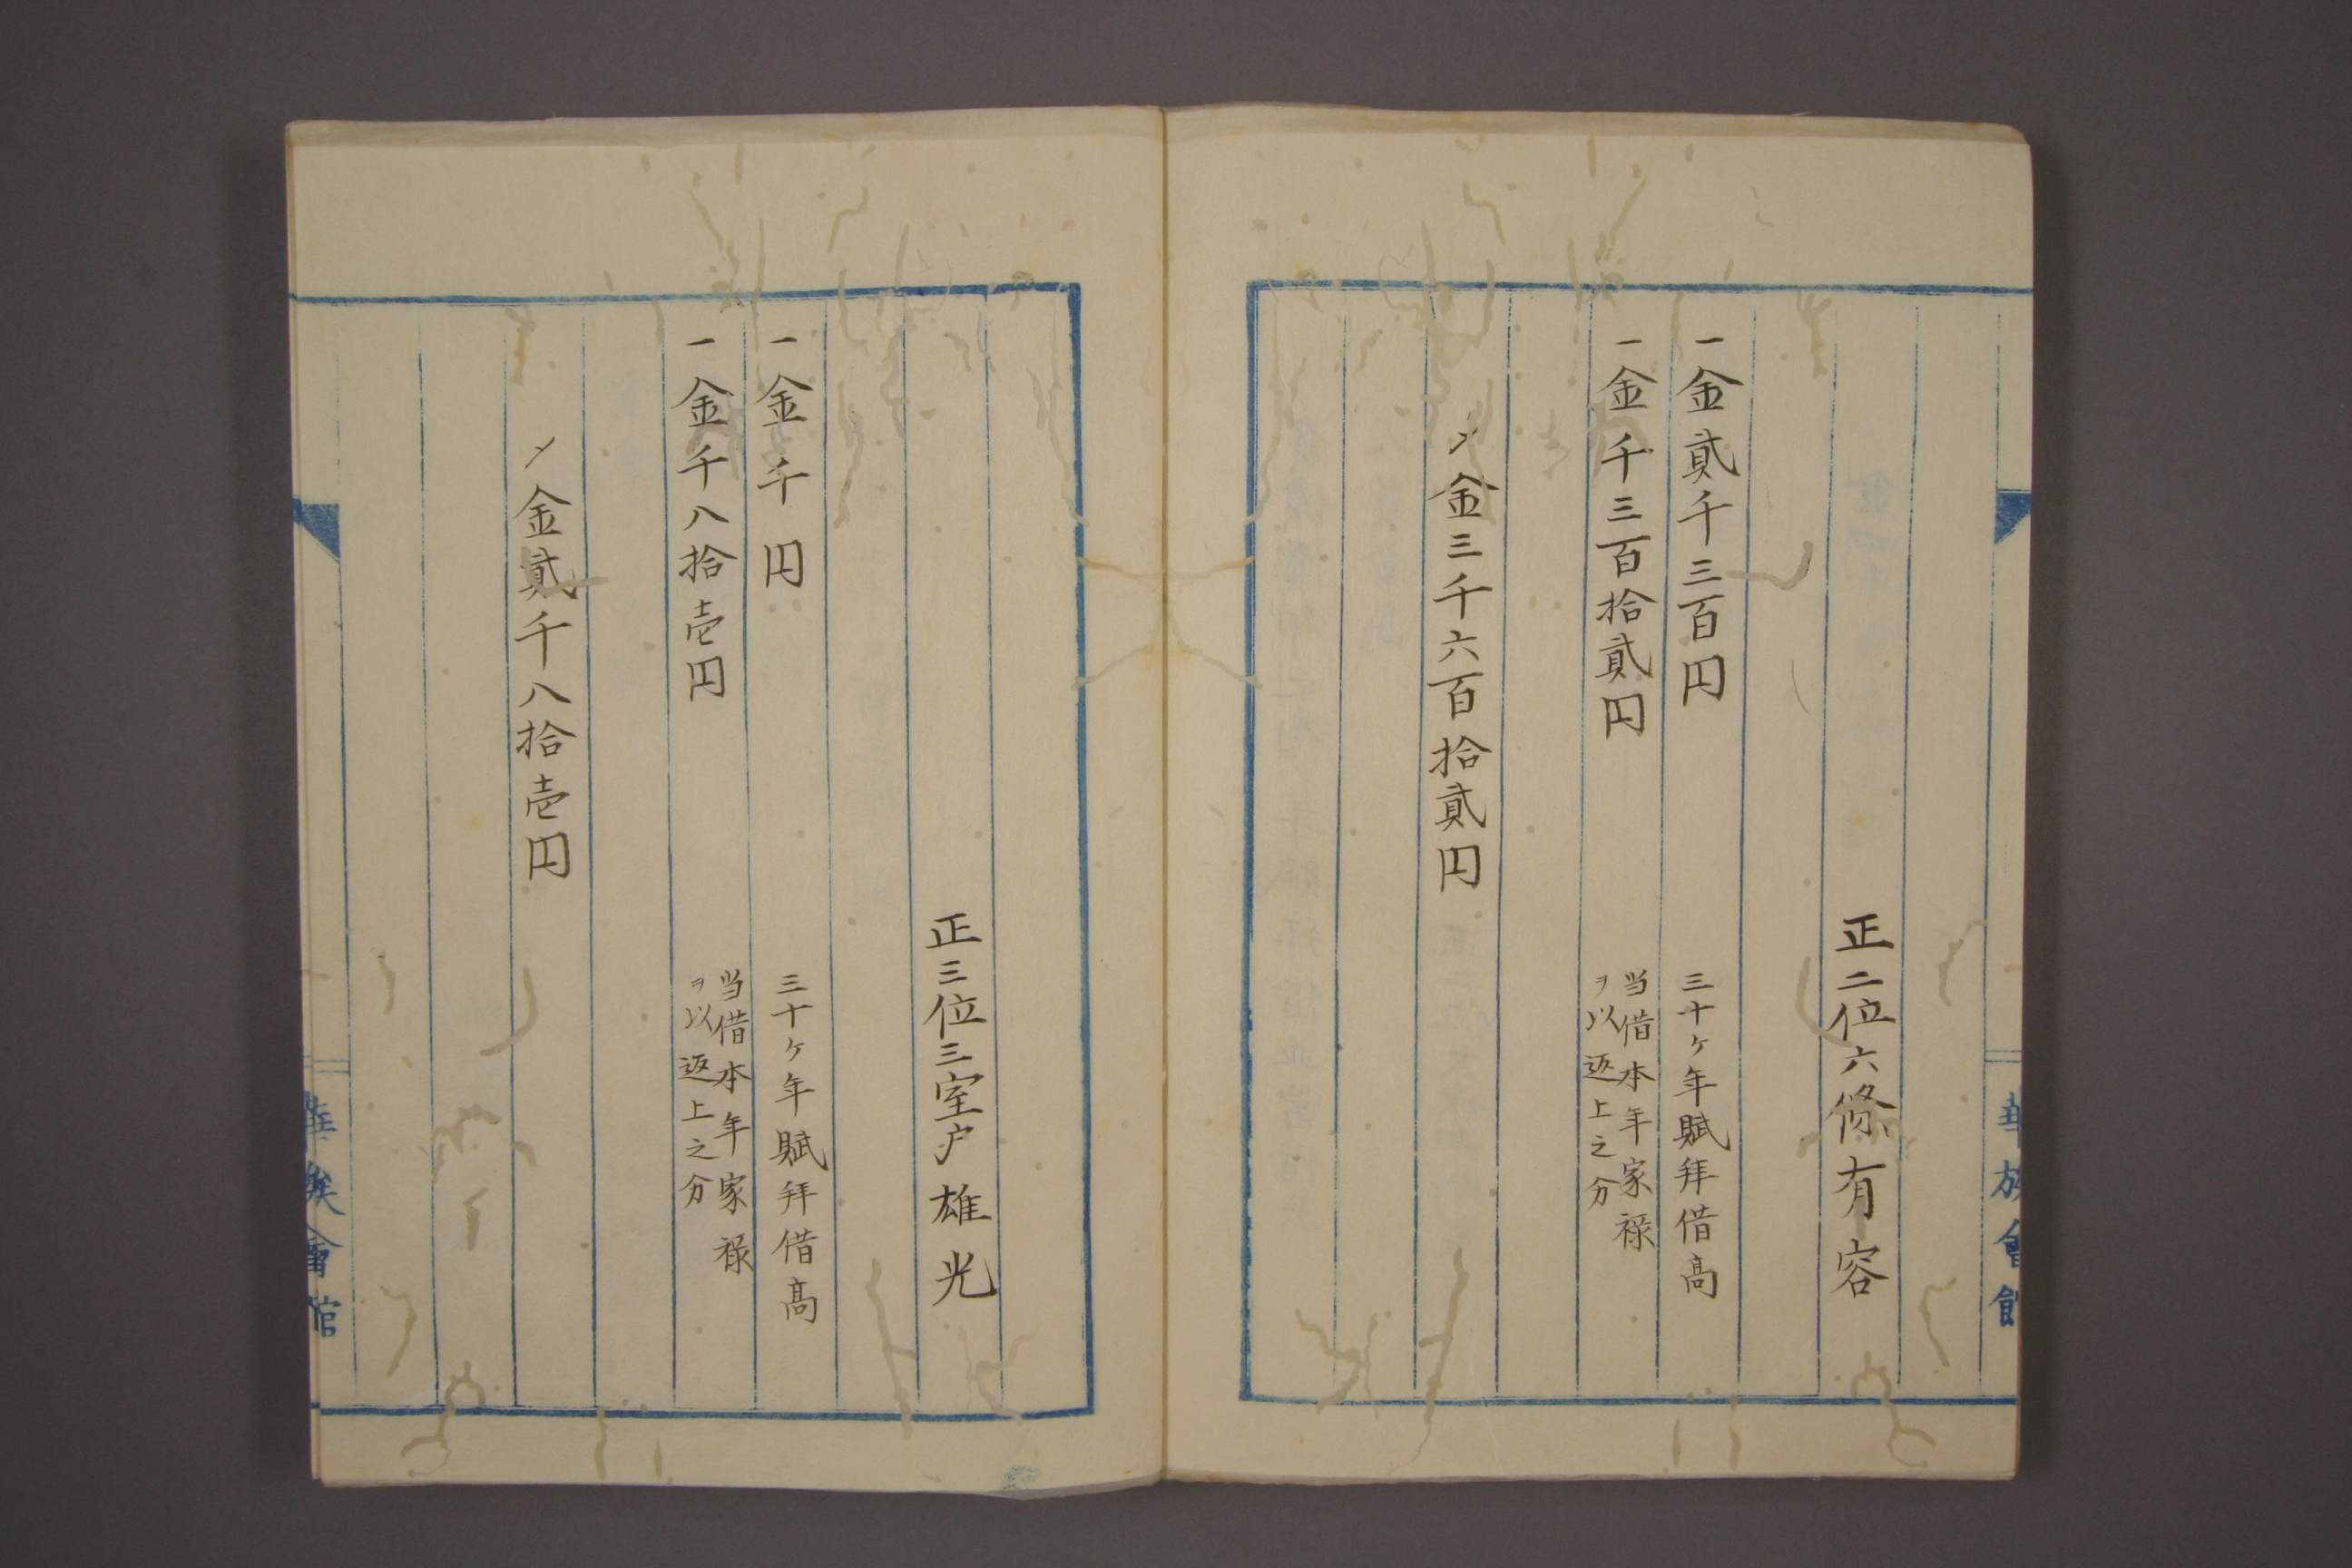 正二位六條有容
一金貳千三百円　三十ヶ年賦拜借高
一金千三百拾貳円　当借本年家禄
ヲ以返上之分
〆金三千六百拾貳円
正三位三室戸雄光
一金千円　三十ヶ年賦拜借高
一金千八拾壱円　当借本年家禄
ヲ以返上之分
〆金貳千八拾壱円
華族會館